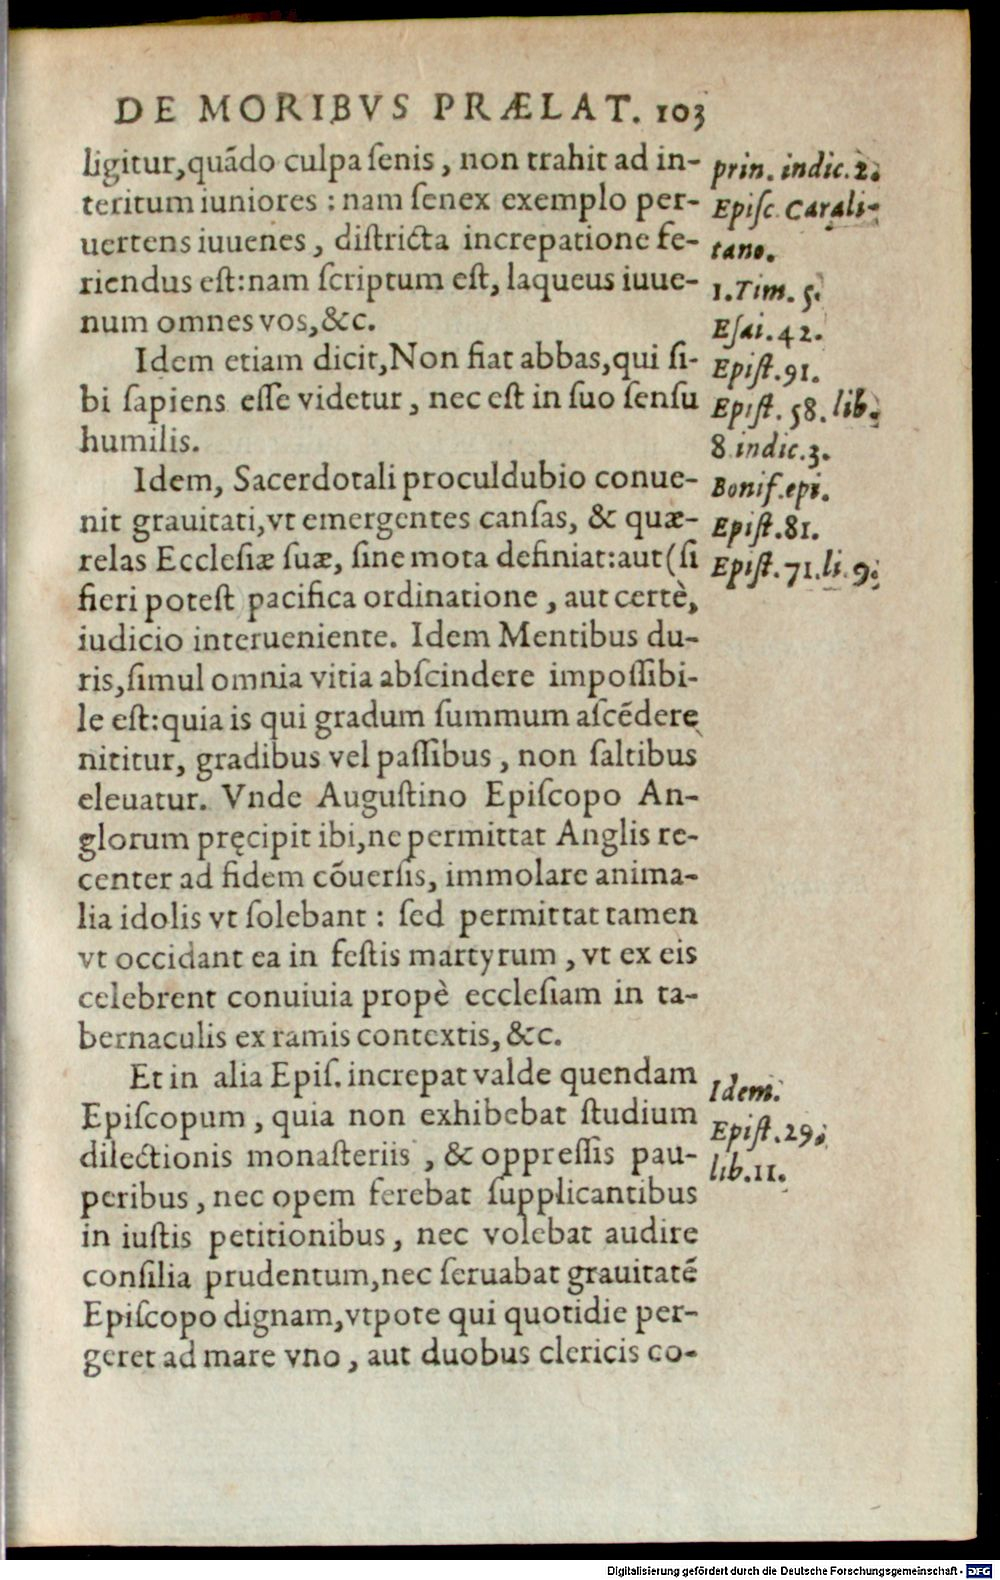 DE MORIBVS PRÆLAT. 103
ligitur,quãdo culpa ſenis, non trahit ad in-
teritum iuniores : nam ſenex exemplo per-
uertens iuuenes, diſtricta increpatione fe-
riendus eſt:nam ſcriptum eſt, laqueus iuue-
num omnes vos,&c.
Idem etiam dicit,Non fiat abbas,qui ſi-
bi ſapiens eſſe videtur, nec eſt in ſuo ſenſu
humilis.
Idem, Sacerdotali proculdubio conue-
nit grauitati,vt emergentes canſas, & quæ-
relas Eccleſiæ ſuæ, ſine mota definiat:aut(ſi
fieri poteſt pacifica ordinatione, aut certè,
iudicio interueniente. Idem Mentibus du-
ris,ſimul omnia vitia abſcindere impoſſibi-
le eſt:quia is qui gradum ſummum aſcẽdere
nititur, gradibus vel paſſibus, non ſaltibus
eleuatur. Vnde Auguſtino Epiſcopo An-
glorum pręcipit ibi,ne permittat Anglis re-
center ad fidem cõuerſis, immolare anima-
lia idolis vt ſolebant : ſed permittat tamen
vt occidant ea in feſtis martyrum, vt ex eis
celebrent conuiuia propè eccleſiam in ta-
bernaculis ex ramis contextis, &c.
Et in alia Epiſ. increpat valde quendam
Epiſcopum, quia non exhibebat ſtudium
dilectionis monaſteriis, & oppreſſis pau-
peribus, nec opem ferebat ſupplicantibus
in iuſtis petitionibus, nec volebat audire
conſilia prudentum,nec ſeruabat grauitatẽ
Epiſcopo dignam,vtpote qui quotidie per-
geret ad mare vno, aut duobus clericis co-
prin. indic.2.
Epiſc Carali-
tano.
1.Tim. 5.
Eſai.42.
Epiſt.91.
Epiſt. 58. lib.
8 indic.3.
Bonif.epi.
Epiſt.81.
Epiſt.71.li.9.
Idem.
Epiſt.29.
lib.11.
Digitalisierung gefördert durch die Deutsche Forschungsgemeinschaft - DFG